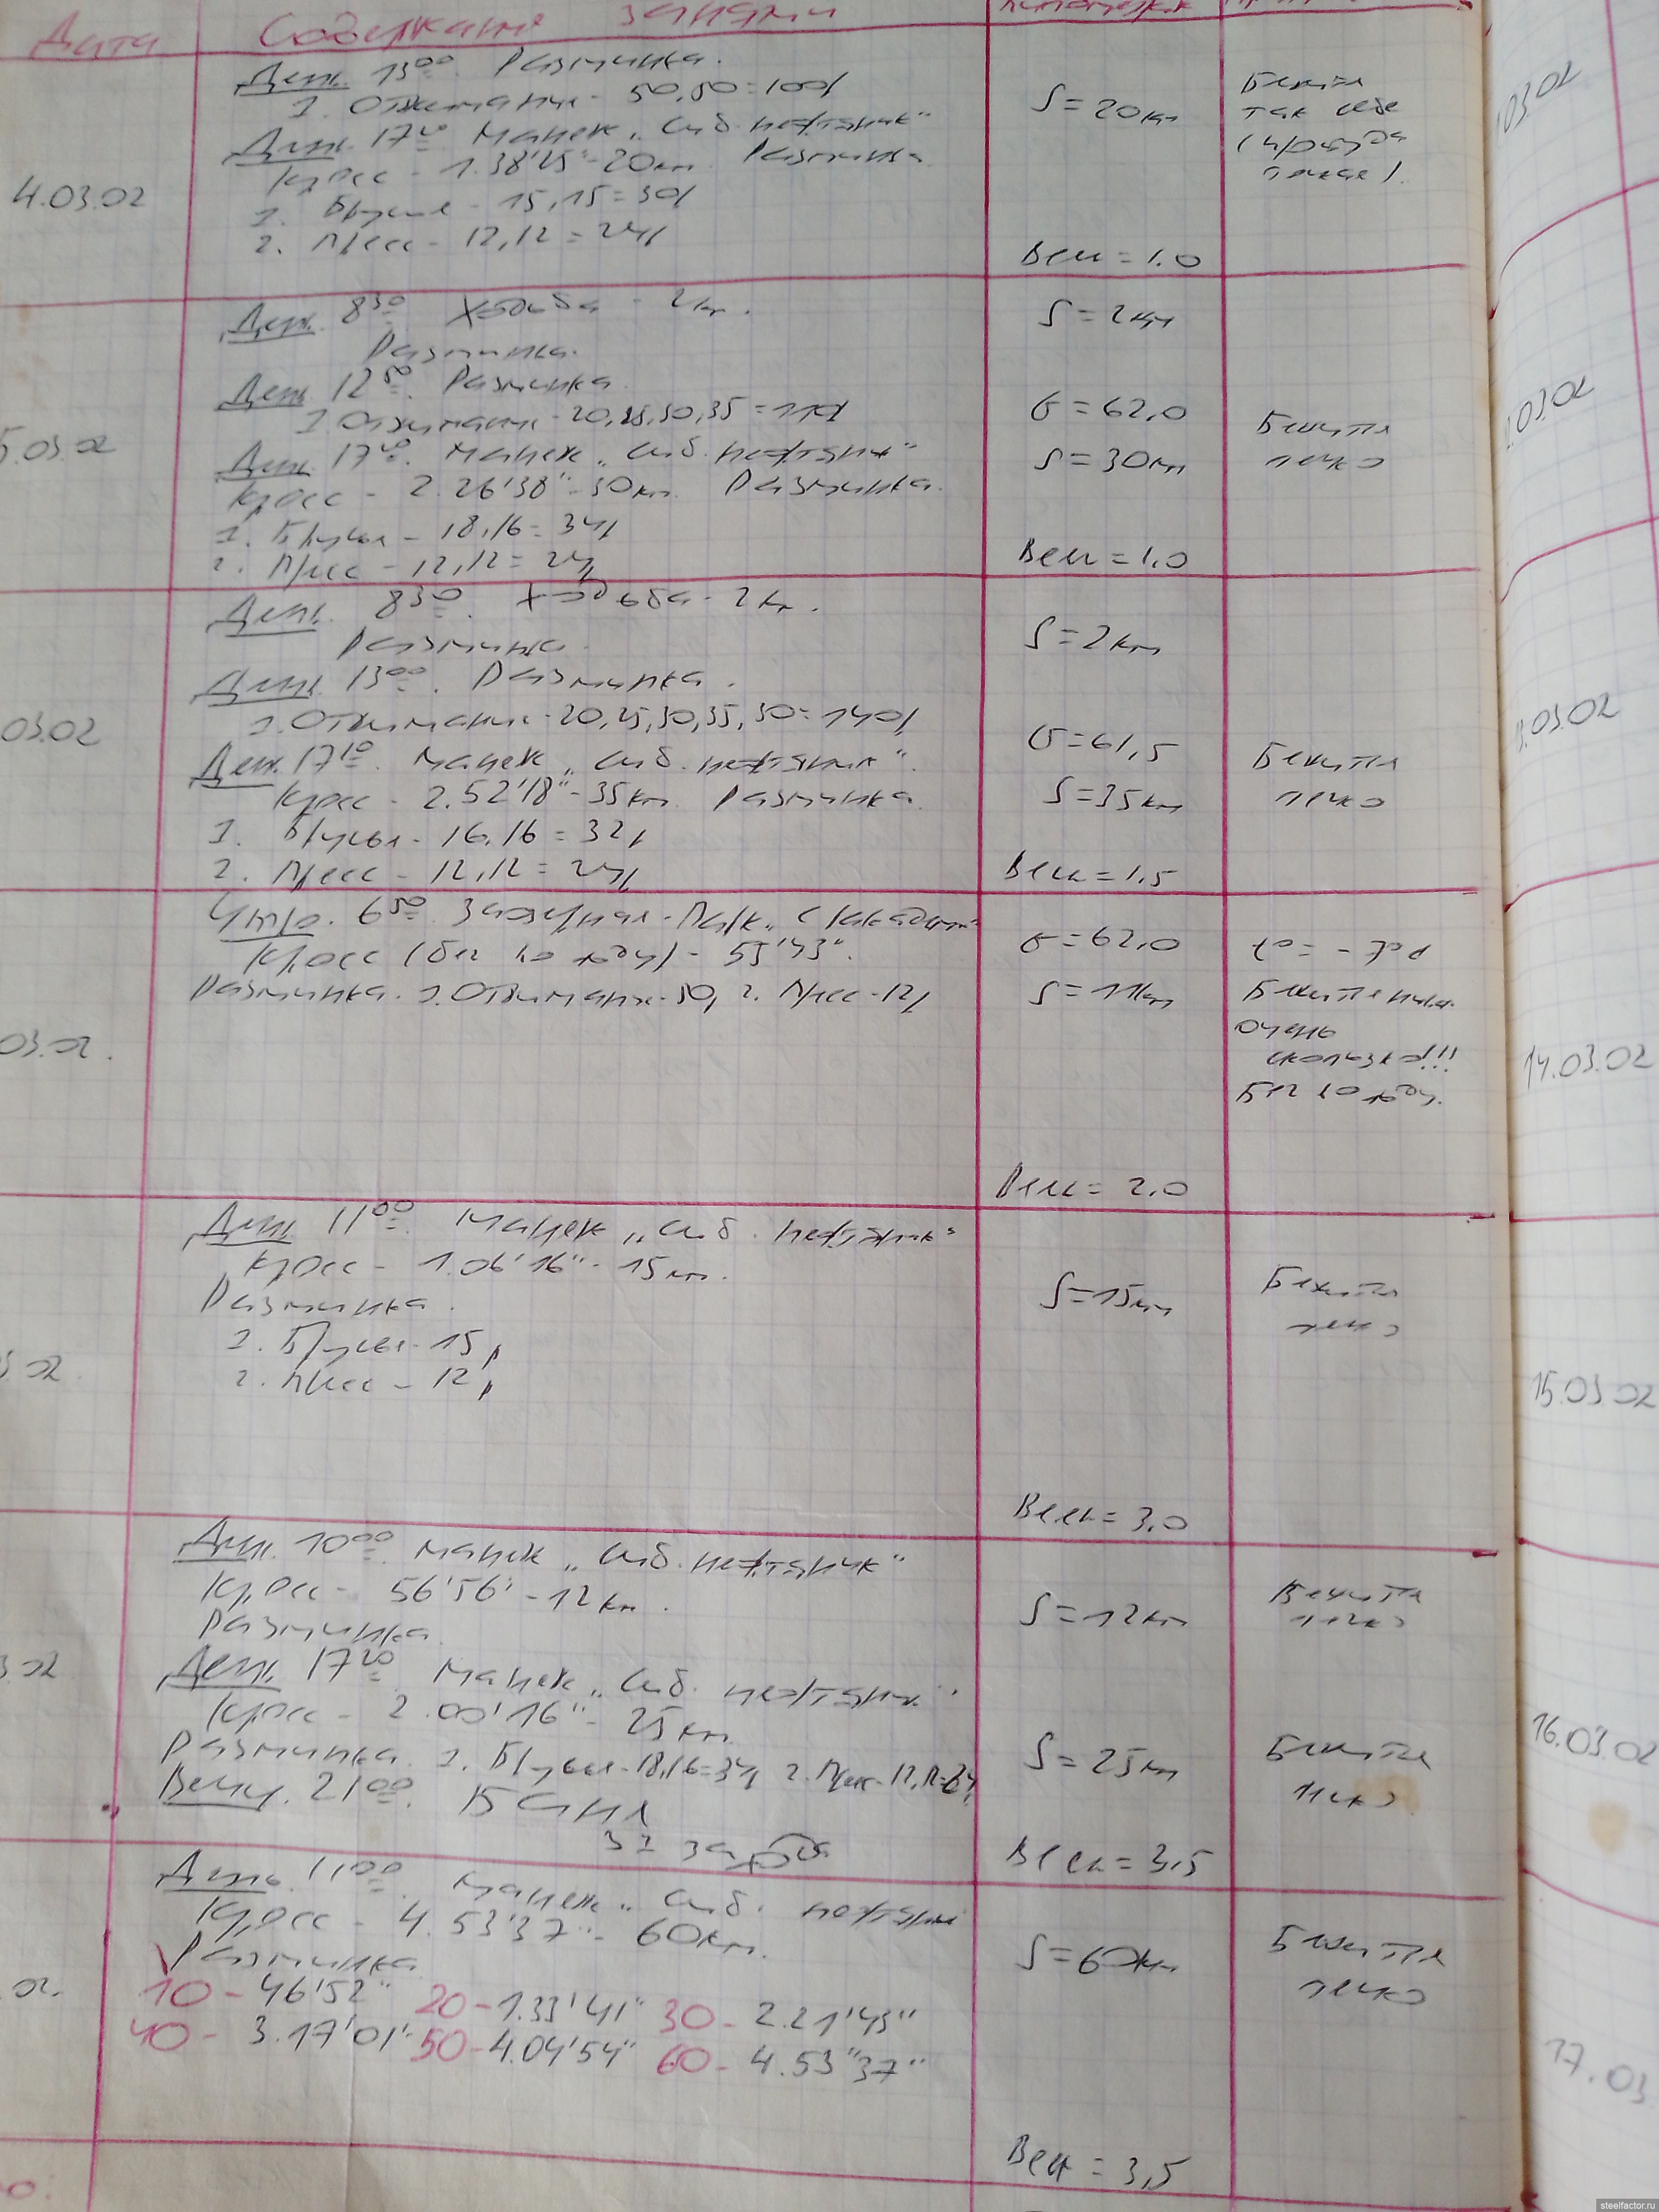 Дата Содержание занятий километраж
4.03.02
День 13⁰⁰. Разминка.
1. Отжимания - 50,50=100р
День 17²⁰ Манеж „Сиб. нефтяник"
Кросс - 1.38'25"-20км Разминка
1. Брусья - 15,15=30р
2. Пресс - 12,12=24р
S=20км
Вес=1.0
Бежится
так себе
5.03.02
День 8³⁰ Ходьба - 2км.
Разминка.
День 12⁵⁰. Разминка.
1. Отжимания - 20,25,30,35=110р
День 17²⁰. Манеж „Сиб. нефтяник"
Кросс - 2.26'38"-30км. Разминка.
1. Брусья - 18,16=34р
2. Пресс - 12,12=24р
S=2км
б=62,0
S=30км
Вес=1,0
Бежится
легко
03.02
День 8³⁰. Ходьба - 2км.
Разминка.
День 13⁰⁰. Разминка.
1. Отжимания - 20,25,30,35,30=140р
День 17¹⁰. Манеж „Сиб. нефтяник".
Кросс - 2.52'18"-35км. Разминка.
1. Брусья - 16,16=32р
2. Пресс - 12,12=24р
S=2км
б=61,5
S=35км
Вес=1,5
Бежится
легко
03.02.
Утро. 6⁵⁰. Заозерная - Парк
Кросс (бег по льду) - 55'43".
Разминка. 1. Отжимания - 50, 2. Пресс - 12р
б=62,0
S=11км
Вес=2,0
t°= -7°
Бежится
очень
скользко!!!
Бег по льду.
03.02.
День 11⁰⁰ Манеж „Сиб. нефтяник"
Кросс - 1.06'16" - 15км.
Разминка.
1. Брусья - 15р
2. Пресс - 12р
S=15км
Вес=3,0
Бежится
легко
3.02
День. 10⁰⁰. Манеж „Сиб. нефтяник"
Кросс - 56'56" - 12км.
Разминка.
День 17²⁰ Манеж „Сиб. нефтяник"
Кросс - 2.00'16" - 25км
Разминка. 1. Брусья - 18,16=34р 2. Пресс - 12,12=24р
Вечер. 21⁰⁰. Баня
3 захода
S=12км
S=25км
Вес=3,5
Бежится
легко
Бежится
легко
02.
День. 11⁰⁰. Манеж „Сиб. нефтяник"
Кросс - 4.53'37" - 60км.
Разминка
10 - 46'52" 20 - 1.33'41" 30 - 2.21'43"
40 - 3.17'01" 50 - 4.04'54" 60 - 4.53"37"
S=60км
Вес=3,5
Бежится
легко
03.02
03.02
03.02
14.03.02
15.03.02
16.03.02
17.03
steelfactor.ru